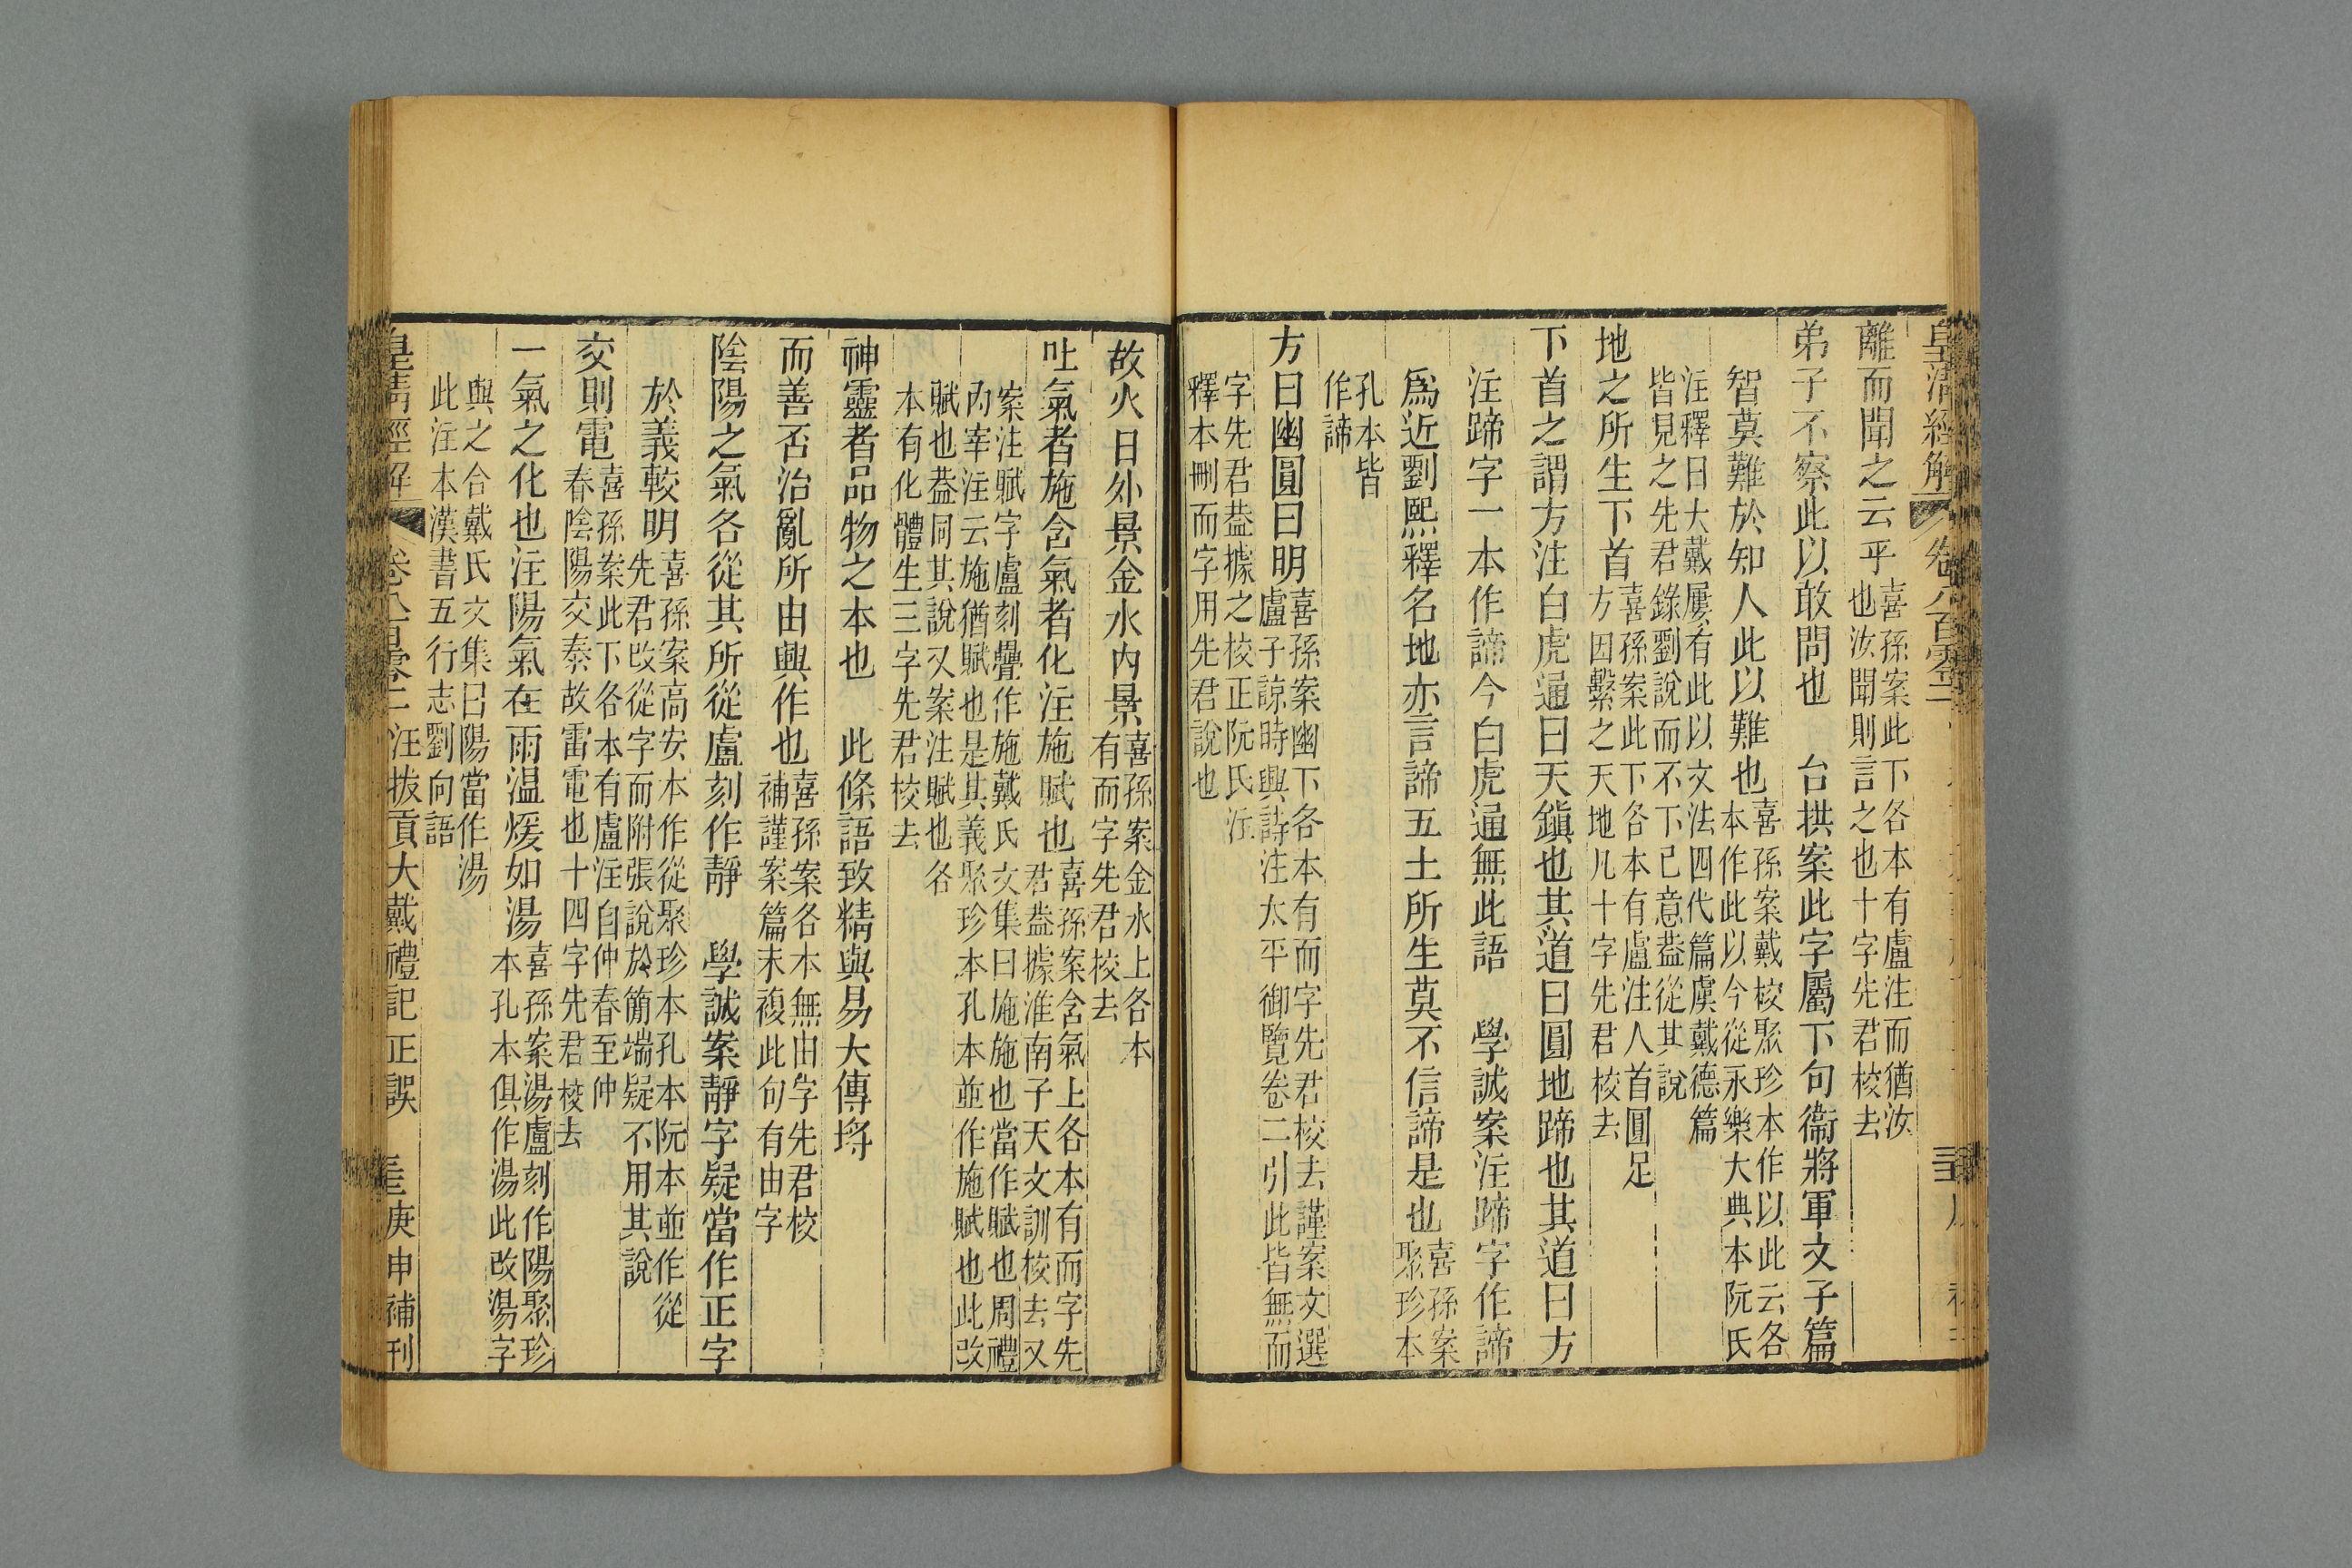 皇清經解 卷八百零二
離而聞之云乎喜孫案此下各本有盧注而猶汝也汝聞則言之也十字先君校去
弟子不察此以敢問也 台拱案此字屬下句衞將軍文子篇
智莫難於知人此以難也喜孫案戴校聚珍本作以此云各本作此以今從永樂大典本阮氏
注釋曰大戴屢有此以文法四代篇虞戴德篇皆見之先君錄劉說而不下己意葢從其說
地之所生下首喜孫案此下各本有盧注人首圓足方因繫之天地凡十字先君校去
下首之謂方注白虎通曰天鎭也其道曰圓地蹄也其道曰方
注蹄字一本作諦今白虎通無此語 學誠案注蹄字作諦
爲近劉熙釋名地亦言諦五土所生莫不信諦是也喜孫案聚珍本
孔本皆作諦
方曰幽圓曰明喜孫案幽下各本有而字先君校去謹案文選盧子諒時興詩注太平御覽卷二引此皆無而
字先君葢據之校正阮氏注釋本刪而字用先君說也
故火日外景金水內景喜孫案金水上各本有而字先君校去
吐氣者施含氣者化注施賦也喜孫案含氣上各本有而字先君葢據淮南子天文訓校去又
案注賦字盧刻譌作施戴氏文集曰施施也當作賦也周禮內宰注云施猶賦也是其義聚珍本孔本並作施賦也此改
賦也葢同其說又案注賦也各本有化體生三字先君校去
神靈者品物之本也 此條語致精與易大傳埒
而善否治亂所由興作也喜孫案各本無由字先君校補謹案篇末複此句有由字
陰陽之氣各從其所從盧刻作靜 學誠案靜字疑當作正字
於義較明喜孫案高安本作從聚珍本孔本阮本並作從先君改從字而附張說於簡端疑不用其說
交則電喜孫案此下各本有盧注自仲春至仲春陰陽交泰故雷電也十四字先君校去
一氣之化也注陽氣在雨温煖如湯喜孫案湯盧刻作陽聚珍本孔本俱作湯此改湯字
與之合戴氏文集曰陽當作湯此注本漢書五行志劉向語
皇清經解 卷八百零二 汪拔貢大戴禮記正誤 庚申補刊